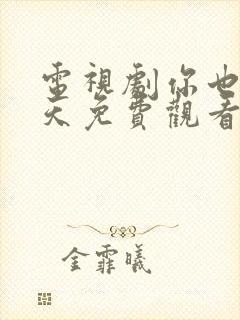 電視劇你也
天免費觀看
金霏曦